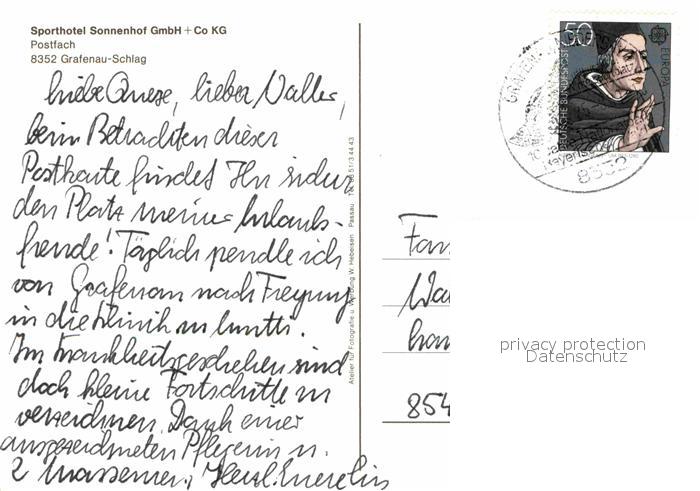 Sporthotel Sonnenhof GmbH + Co KG
Postfach
8352 Grafenau-Schlag
beim Betrachten dieser
Postkarte findet Ihr sicher
den Platz meiner Urlaubs-
freude! Täglich pendle ich
von Grafenau nach Freyung
in die Klinik zu
Im Krankheitsgeschehen sind
doch kleine Fortschritte zu
verzeichnen. Dank einer
ausgezeichneten Pflegerin u.
2 Masseuren. Herzl.
Atelier für Fotografie u. Werbung W. Hebeisen Passau Tel. 08 51/3 44 43
50
EUROPA
DEUTSCHE BUNDESPOST
8352
Fam
854
privacy protection
Datenschutz